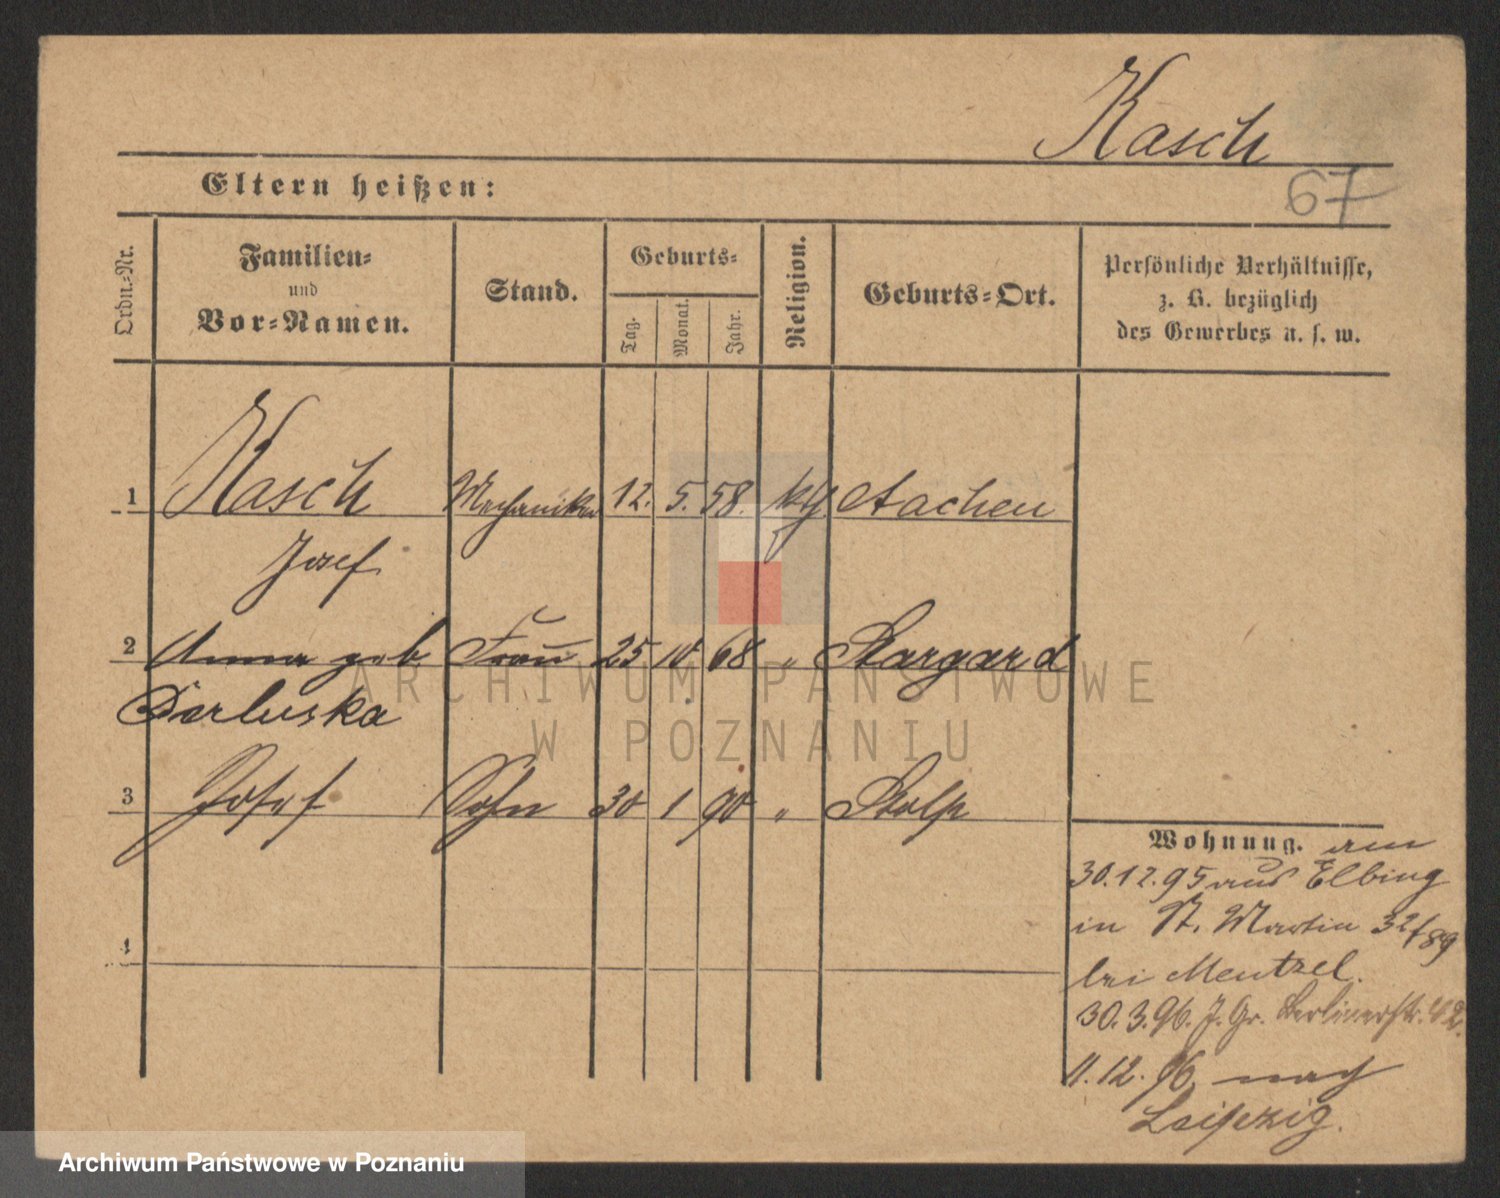 Kasch
67
Eltern heißen:
Ordn.-Nr.
Familien-
und
Vor-Namen.
Stand.
Geburts-
Tag.
Monat.
Jahr.
Religion.
Geburts-Ort.
Persönliche Verhältnisse,
z. B. bezüglich
des Gewerbes u. s. w.
1 Kasch Mechaniker 12. 5. 58. kth. Aachen
Josef
2 Anna geb. Frau 25 10 68 " Stargard
Derluska
3 Josef Sohn 30 1 90 " Stolp
4
Wohnung. am
30.12.95 aus Elbing
in St. Martin 32/89
bei Mentzel.
30.3.96. J. Gr. Berlinerstr. 42.
11.12.96 nach
Leipzig.
ARCHIWUM PAŃSTWOWE
W POZNANIU
Archiwum Państwowe w Poznaniu